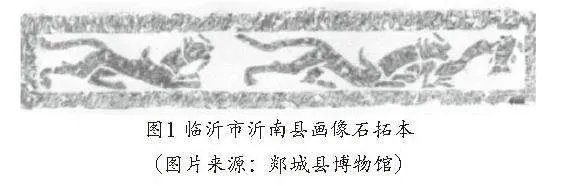 图1 临沂市沂南县画像石拓本
(图片来源：郯城县博物馆)